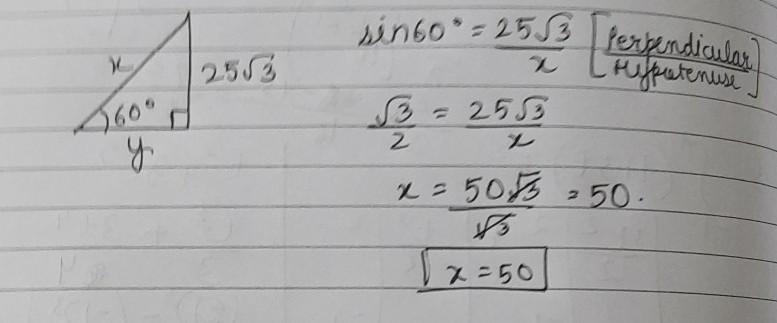 x
25√3
60°
y
sin60° = 25√3/x [Perpendicular/Hyputenuse]
√3/2 = 25√3/x
x = 50√3/√3 = 50.
x = 50